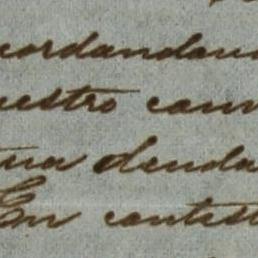 cordandan
uestro cam
una deuda
En contest